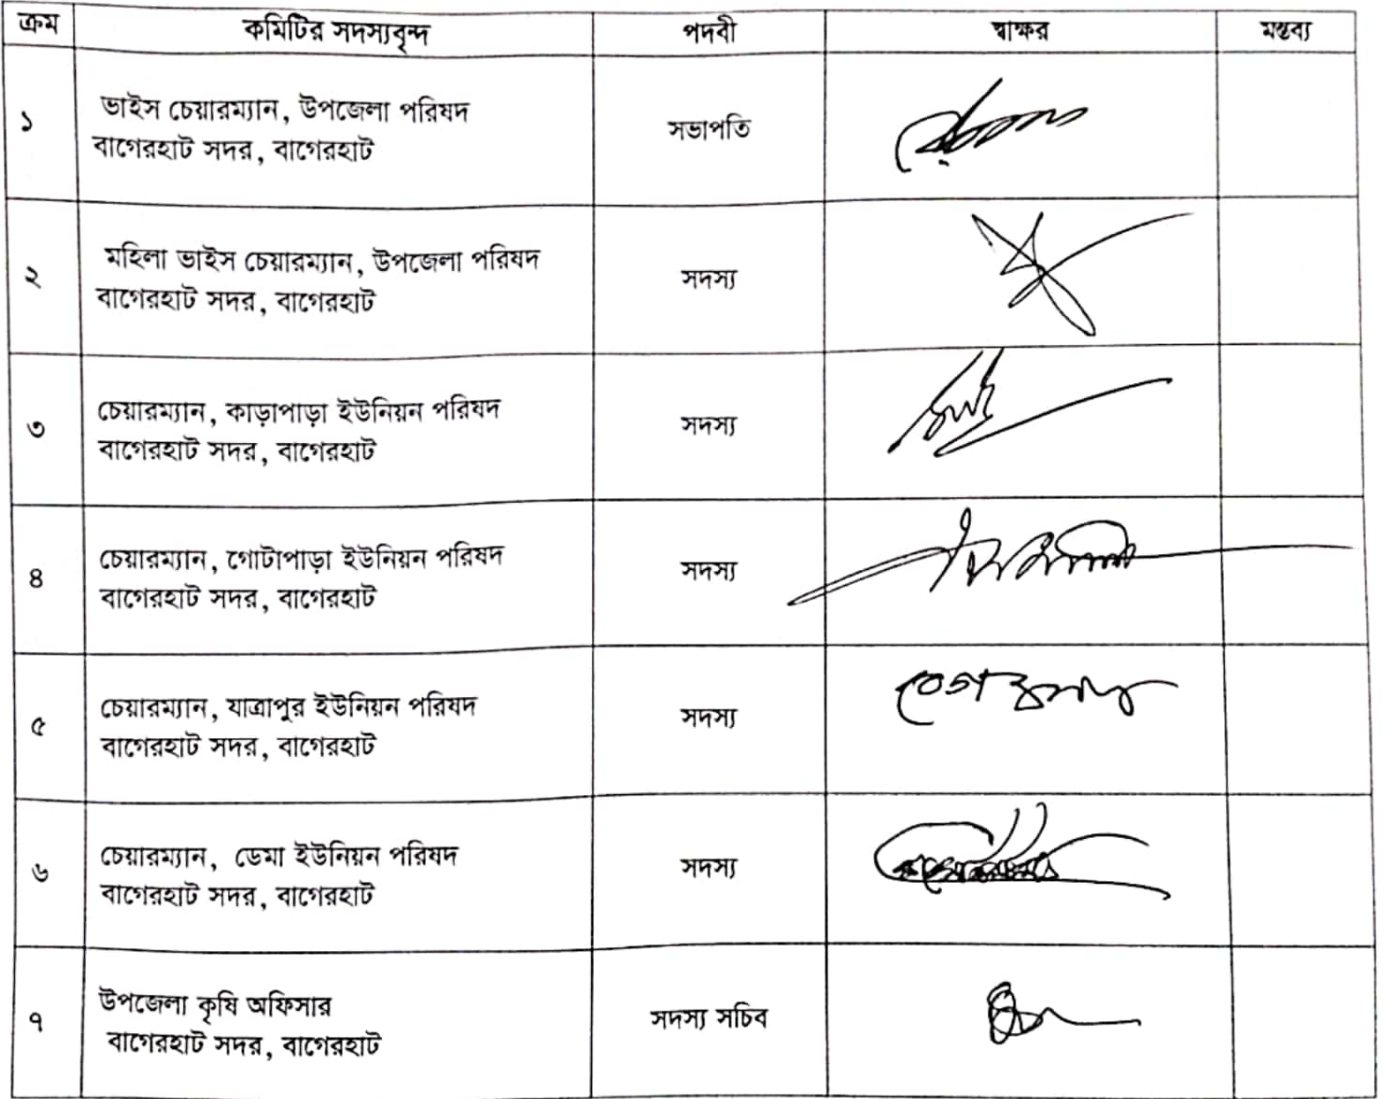 ক্রম কমিটির সদস্যবৃন্দ পদবী স্বাক্ষর মন্তব্য
১ ভাইস চেয়ারম্যান, উপজেলা পরিষদ
বাগেরহাট সদর, বাগেরহাট সভাপতি
২ মহিলা ভাইস চেয়ারম্যান, উপজেলা পরিষদ
বাগেরহাট সদর, বাগেরহাট সদস্য
৩ চেয়ারম্যান, কাড়াপাড়া ইউনিয়ন পরিষদ
বাগেরহাট সদর, বাগেরহাট সদস্য
৪ চেয়ারম্যান, গোটাপাড়া ইউনিয়ন পরিষদ
বাগেরহাট সদর, বাগেরহাট সদস্য
৫ চেয়ারম্যান, যাত্রাপুর ইউনিয়ন পরিষদ
বাগেরহাট সদর, বাগেরহাট সদস্য
৬ চেয়ারম্যান, ডেমা ইউনিয়ন পরিষদ
বাগেরহাট সদর, বাগেরহাট সদস্য
৭ উপজেলা কৃষি অফিসার
বাগেরহাট সদর, বাগেরহাট সদস্য সচিব